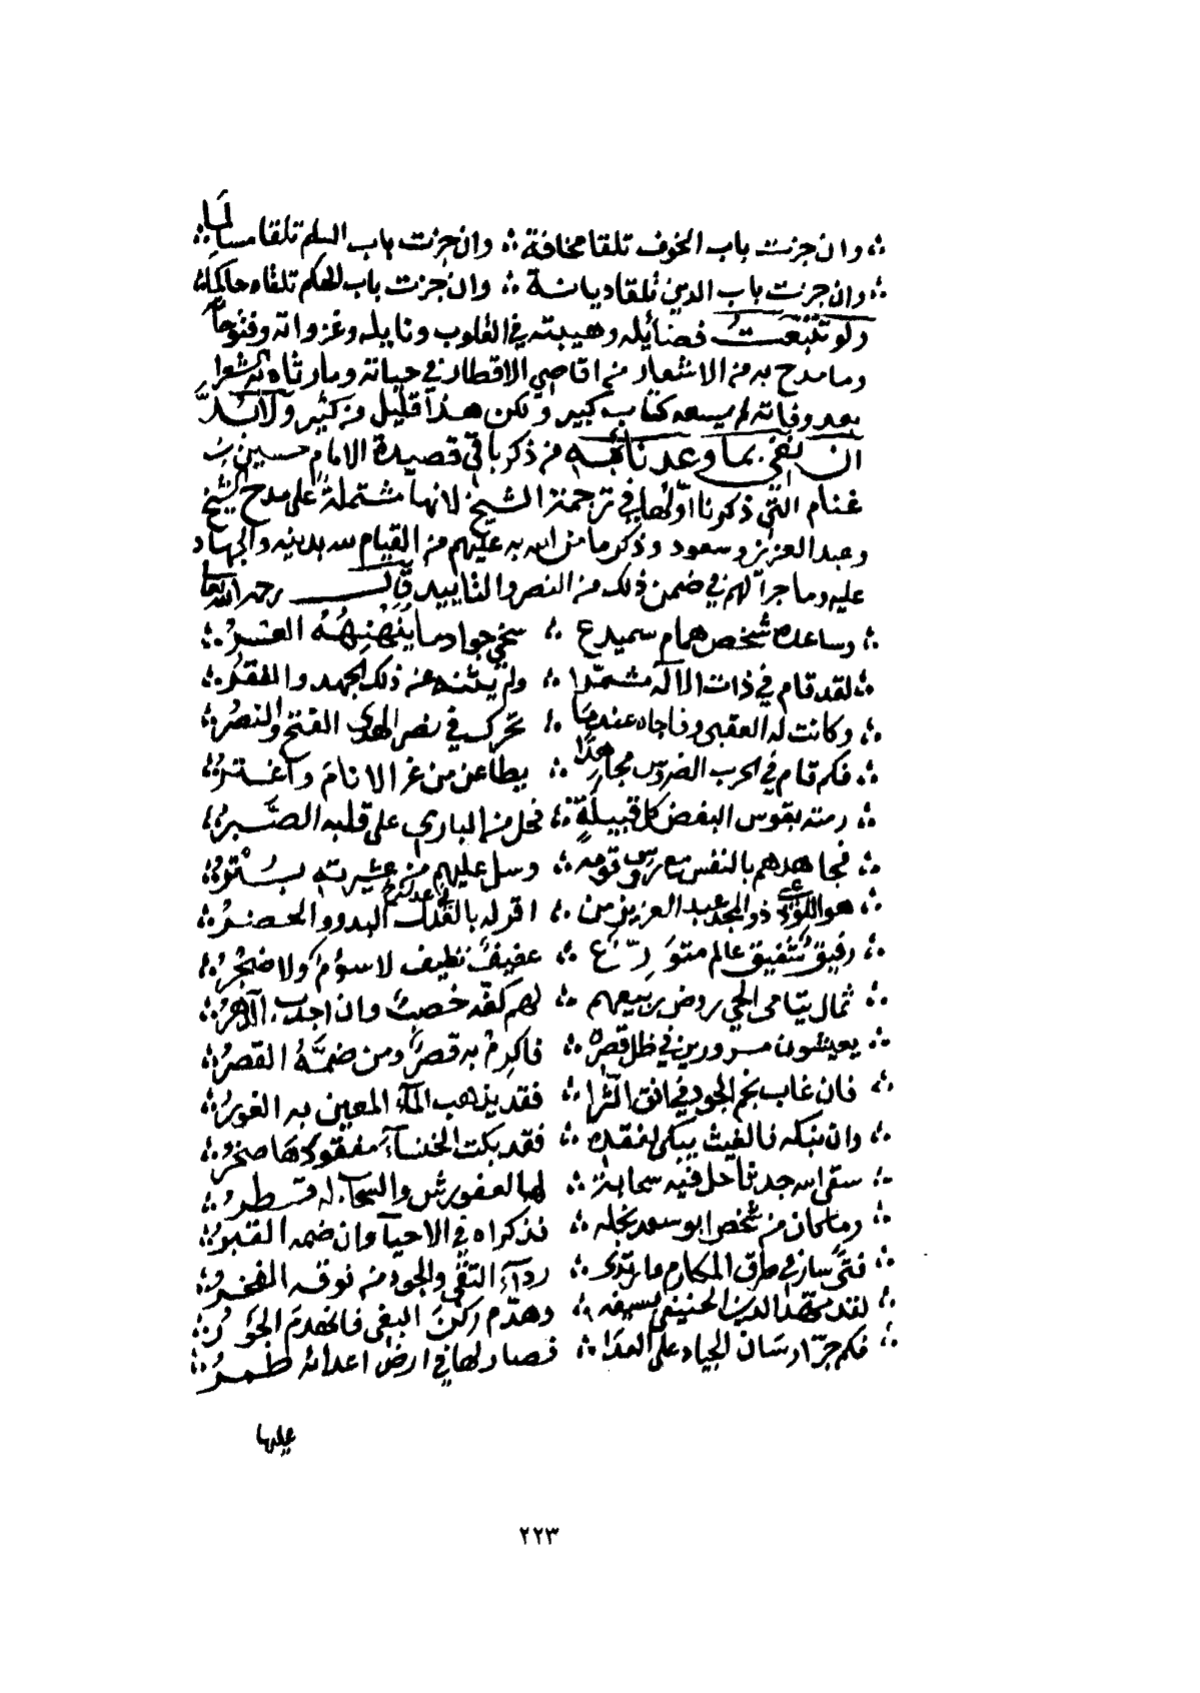 ؞ وان جزت باب الخوف تلقا مخافة ؞ وان جزت باب السلم تلقا مسالما ؞
؞ وان جزت باب الدين تلقا ديانة ؞ وان جزت باب الحكم تلقاه حاكما ؞
ولو تتبعت فضايله وهيبته في القلوب وغزواته وفتوحاته
وما مدح به من الاشعار من اقاصي الاقطار في حياته وما رثاه به الشعراء
بعد وفاته لم يسعه كتاب كبير ولكن هذا قليل من كثير ولا بُدَّ
ان نفي بما وعدنا به من ذكر باقي قصيدة الامام حسين بن
غنام التي ذكرنا اوّلها في ترجمة الشيخ لانها مشتملة على مدح الشيخ
وعبد العزيز وسعود وذكر ما من الله به عليهم من القيام لله بدينه والجهاد
عليه وما جرا لهم في ضمن ذلك من النصر والتاييد قال رحمه الله تعا
؞ وساعده شخص همام سميدع ؞ سخي جواد ما يُنَهْنِهُهُ العسرُ ؞
؞ لقد قام في ذات الاله مشمّرا ؞ ولم يثنه عن ذلك الجهد والفقرُ ؞
؞ وكانت له العقبى وفاجاه عندما ؞ تحرك في نصر الهدى الفتح والنصرُ ؞
؞ فكم قام في الحرب الضروس مجاهدًا ؞ يطاعن من غر الانام واغترُ ؞
؞ رمته بقوس البغض كل قبيلةٍ ؞ فحل من الباري على قلبه الصَّبرُ ؞
؞ فجاهدهم بالنفس مع قومه ؞ وسل عليهم من عشيرته بُتْرُ ؞
؞ هو ذو المجد عبد العزيز من ؞ اقر له بالفضل البدو والحضرُ ؞
؞ رفيق شفيق عالم متورّع ؞ عفيفٌ نظيف لا سؤم ولا ضجرُ ؞
؞ ثمال يتامى الحي روض ربيعهم ؞ لهم كفّه خصبٌ وان اجدب الدهرُ ؞
؞ يعيشون مسرورين في ظل قصره ؞ فاكرِمْ به قصرًا ومن ضمَّهُ القصرُ ؞
؞ فان غاب نجم الجود في افق الثرا ؞ فقد يذهب الماء المعين به الغورُ ؞
؞ وان نبكه فالغيث يبكى لفقده ؞ فقد بكت الخنساء مفقودها صخرُ ؞
؞ سقى الله جدثا حل فيه سحابة ؞ لها العفو رش والسحاب له قطرُ ؞
؞ وما كان من شخص ابو سعد نجله ؞ فذكراه في الاحيا وان ضمه القبرُ ؞
؞ فتًى سار في طرق المكارم ما ارتدى ؞ رداء التقى والجود من فوقه الفخرُ ؞
؞ لقد مهّد الدين الحنيفي بسيفه ؞ وهدّم ركنَ البغي فانهدمَ الجورُ ؞
؞ فكم جرّ ارسان الجياد على العدا ؞ فصار لها في ارض اعدائه طمرُ ؞
عليها
٢٢٣